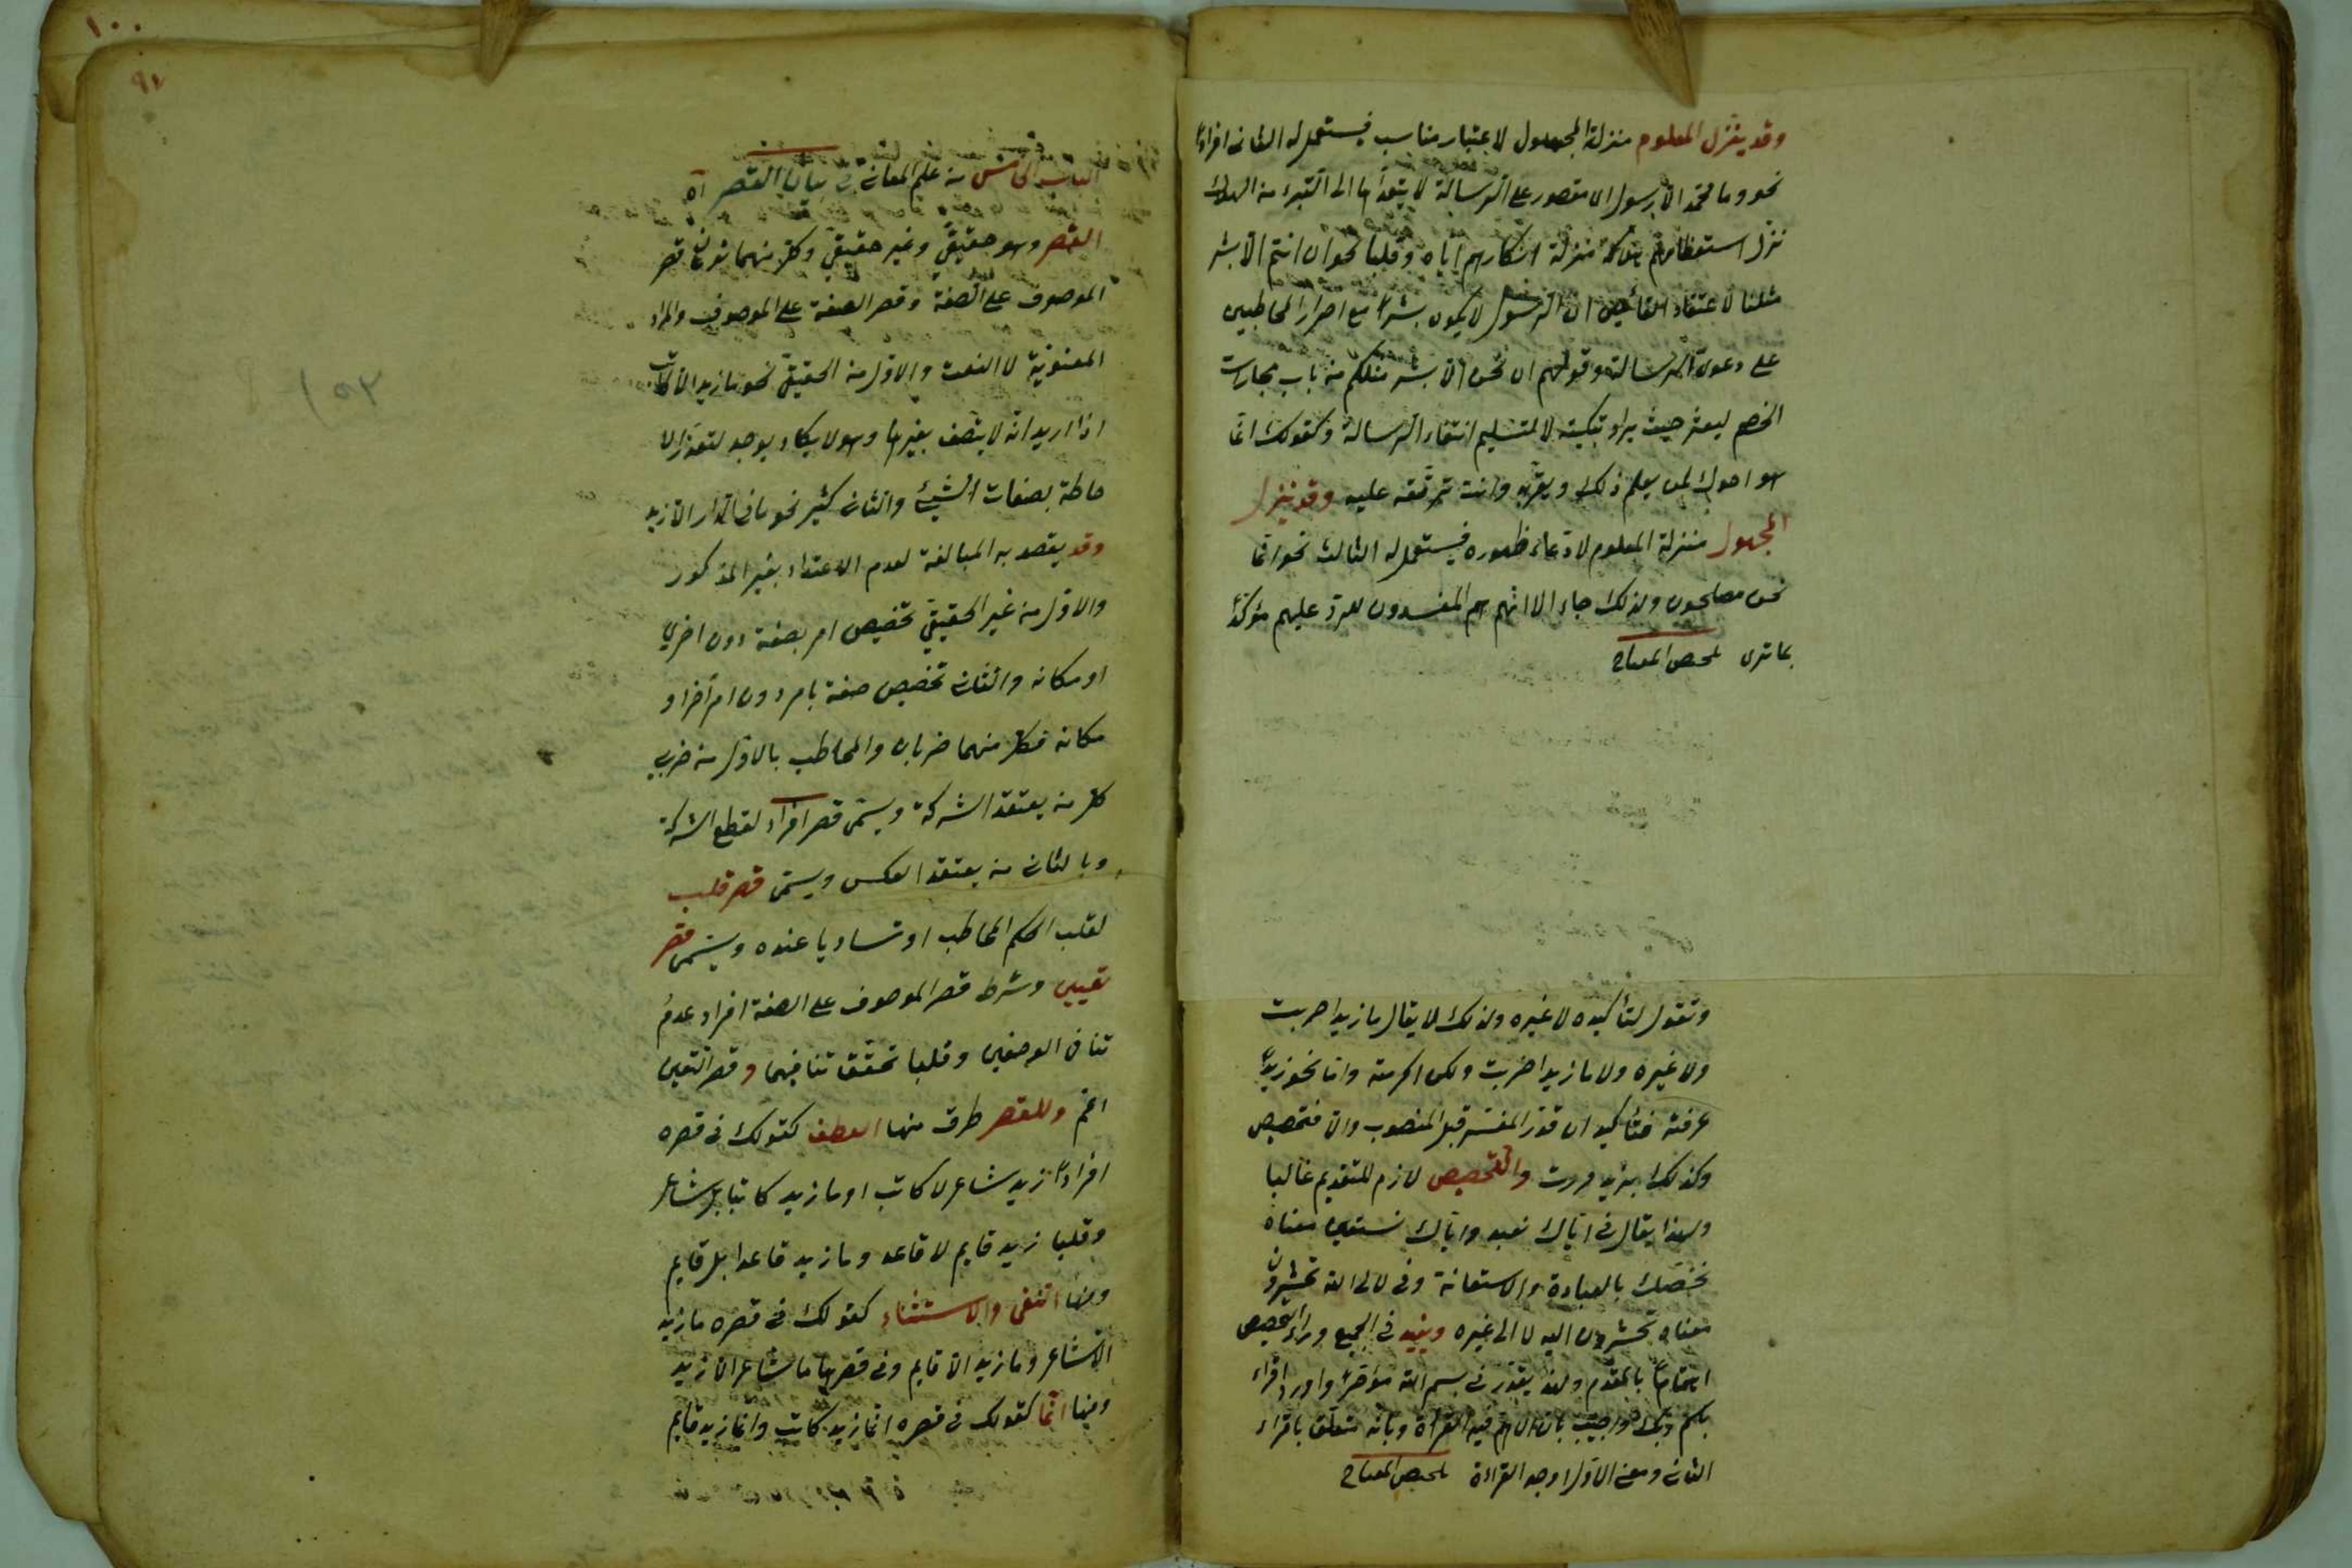 وقد ينزل المعلوم منزلة المجهول لاعتبار مناسب فيستعمل له الثاني افرادًا
نحو وما محمّد الا رسول اى مقصور على الرسالة لا يتعدّاها الى التبرء من الهلاك
نزل استعظامهم هلاكه منزلة انكارهم اياه وقلبا نحو ان انتم الا بشر
مثلنا لاعتقاد القائلين ان الرسول لا يكون بشرًا مع اصرار المخاطبين
على دعوى الرسالة وقولهم ان نحن الا بشر مثلكم من باب مجارات
الخصم ليعثر حيث يراد تبكيته لا لتسليم انتفاء الرسالة وكقولك انما
هو اخوك لمن يعلم ذلك ويقرّبه وانت ترقّقه عليه وقد ينزل
المجهول منزلة المعلوم لادّعاء ظهوره فيستعمل له الثالث نحو انّما
نحن مصلحون ولذلك جاء الا انّهم هم المفسدون للردّ عليهم مؤكّدًا
بما ترى تلخيص المفتاح
وتقول لتأكيده لا غيره ولذلك لا يقال ما زيدا ضربت
ولا غيره ولا ما زيدا ضربت ولكن اكرمته واما نحو زيدًا
عرفته فتأكيد ان قدّر المفسّر قبل المنصوب والا فتخصيص
وكذلك بزيد مررت والتخصيص لازم للتقديم غالبا
ولهذا يقال في ايّاك نعبد وايّاك نستعين معناه
نخصّك بالعبادة والاستعانة وفى لالى الله تحشرون
معناه تحشرون اليه لا الى غيره ويفيد في الجميع وراء التخصيص
اهتمامًا بالمقدّم ولهذا يقدّر في بسم الله مؤخّرًا واورد اقرأ
باسم ربّك واجيب بان الاهم فيه القرأة وبانّه متعلّق باقراء
الثاني ومعنى الاوّل اوجد القراءة تلخيص المفتاح
٩٧
١٠٠
الباب الخامس من علم المعاني في بيان القصر اه
القصر وهو حقيقيّ وغير حقيقيّ وكلّ منهما نوعان قصر
الموصوف على الصفة وقصر الصفة على الموصوف والمراد
المعنوية لا النعت والاوّل من الحقيقيّ نحو ما زيد الا كاتب
اذا اريد انّه لا يتّصف بغيرها وهو لا يكاد يوجد لتعذّر الا
حاطة بصفات الشيئ والثاني كثير نحو ما في الدار الا زيد
وقد يقصد به المبالغة لعدم الاعتداد بغير المذكور
والاوّل من غير الحقيقيّ تخصيص امر بصفة دون اخرى
او مكانه والثاني تخصيص صفة بامر دون امر آخر او
مكانه فكلّ منهما ضربان والمخاطب بالاوّل من ضربي
كلّ من يعتقد الشركة ويسمّى قصر افراد لقطع الشركة
وبالثاني من يعتقد العكس ويسمّى قصر قلب
لقلب الحكم المخاطب او تساويا عنده ويسمّى قصر
تعيين وشرط قصر الموصوف على الصفة افراد عدم
تنافى الوصفين وقلبا تحقّق تنافيهما وقصر التعين
اعمّ وللقصر طرق منها العطف كقولك في قصره
افرادًا زيد شاعر لا كاتب او ما زيد كاتبا بل شاعر
وقلبا زيد قايم لا قاعد وما زيد قاعدا بل قايم
ومنها النفى والاستثناء كقولك في قصره ما زيد
الا شاعر وما زيد الا قايم وفي قصرها ما شاعر الا زيد
ومنها انّما كقولك في قصره انّما زيد كاتب وانّما زيد قايم
١٥٢